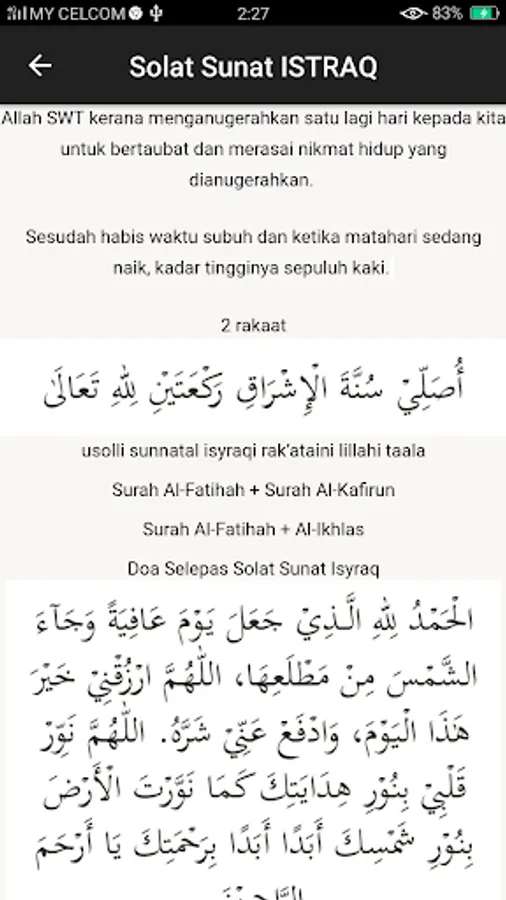 MY CELCOM 2:27 83%
Solat Sunat ISTRAQ
Allah SWT kerana menganugerahkan satu lagi hari kepada kita
untuk bertaubat dan merasai nikmat hidup yang
dianugerahkan.
Sesudah habis waktu subuh dan ketika matahari sedang
naik, kadar tingginya sepuluh kaki.
2 rakaat
أُصَلِّيْ سُنَّةَ الْإِشْرَاقِ رَكْعَتَيْنِ لِلّٰهِ تَعَالَىٰ
usolli sunnatal isyraqi rak'ataini lillahi taala
Surah Al-Fatihah + Surah Al-Kafirun
Surah Al-Fatihah + Al-Ikhlas
Doa Selepas Solat Sunat Isyraq
الْحَمْدُ لِلّٰهِ الَّذِيْ جَعَلَ يَوْمَ عَافِيَةً وَجَآءَ
الشَّمْسَ مِنْ مَطْلَعِهَا، اللّٰهُمَّ ارْزُقْنِيْ خَيْرَ
هَذَا الْيَوْمَ، وَادْفَعْ عَنِّيْ شَرَّهُ. اللّٰهُمَّ نَوِّرْ
قَلْبِيْ بِنُوْرِ هِدَايَتِكَ كَمَا نَوَّرْتَ الْأَرْضَ
بِنُوْرِ شَمْسِكَ أَبَدًا أَبَدًا بِرَحْمَتِكَ يَا أَرْحَمَ